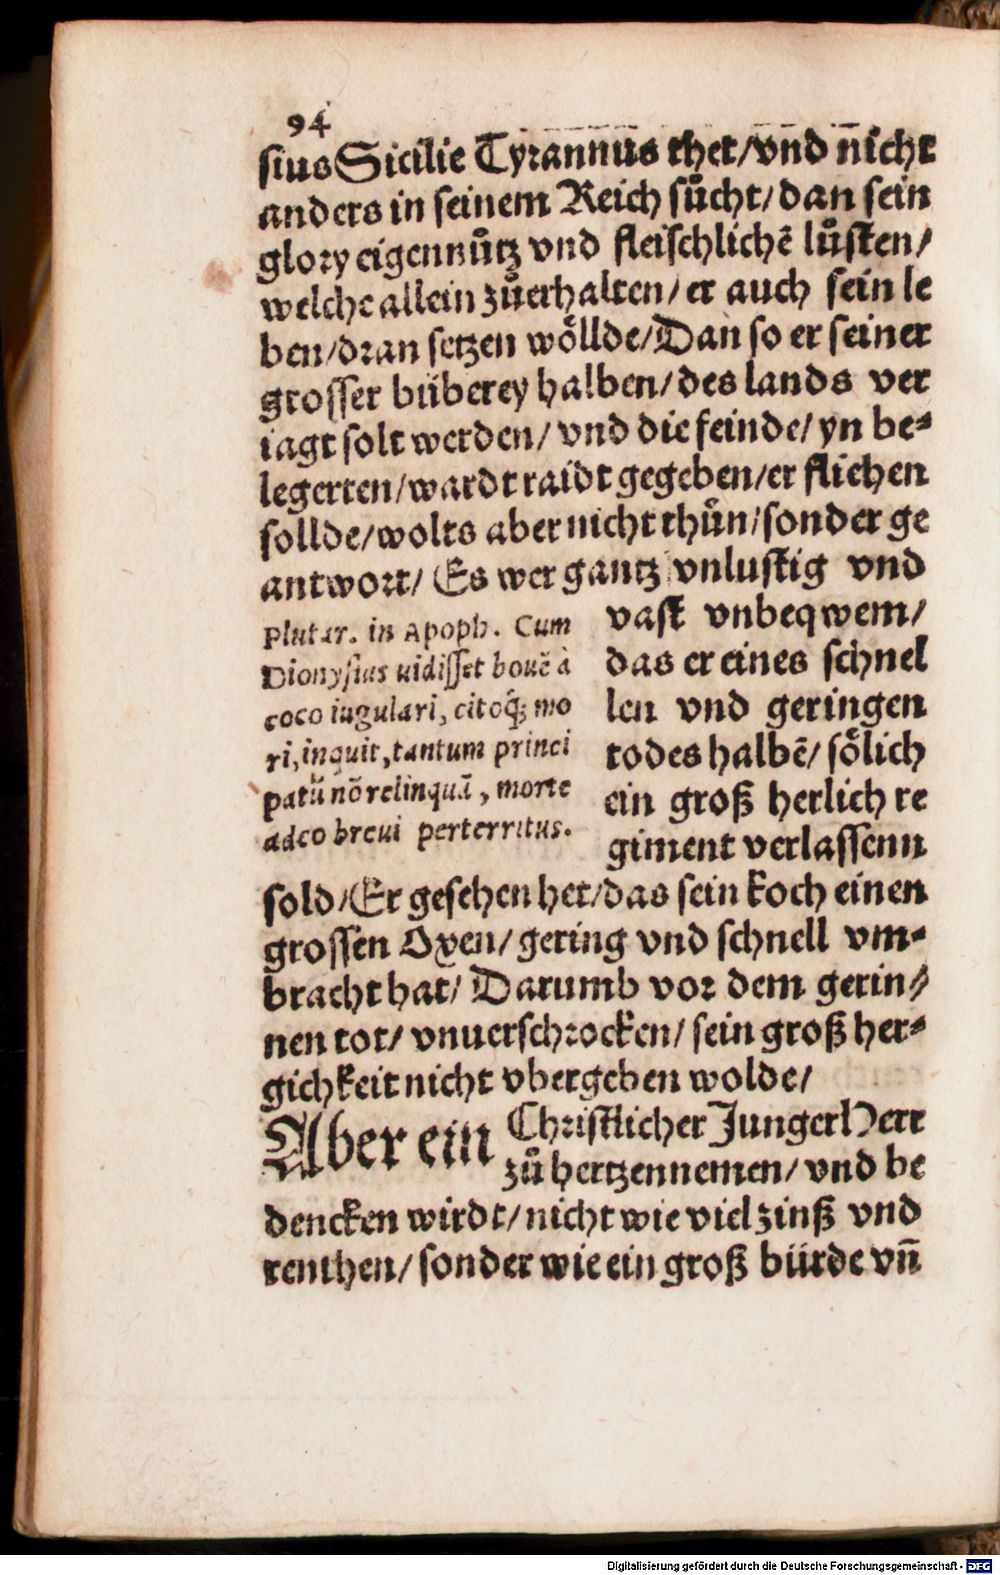 94
sius Sicilie Tyrannus thet/vnd nicht
anders in seinem Reich sůcht/dan sein
glory eigennůtz vnd fleischlichē lůsten/
welche allein zůerhalten/er auch sein le
ben/dran setzen wôllde/Dan so er seiner
grosser büberey halben/des lands ver
iagt solt werden/vnd die feinde/yn be⸗
legerten/wardt raidt gegeben/er fliehen
sollde/wolts aber nicht thůn/sonder ge
antwort/Es wer gantz vnlustig vnd
vast vnbeqwem/
das er eines schnel
len vnd geringen
todes halbē/sôlich
ein groß herlich re
giment verlassenn
Plutar. in Apoph. Cum
Dionysius uidisset bouē à
coco iugulari, citoq́; mo
ri, inquit, tantum princi
patū nō relinquā, morte
adeo breui perterritus.
sold/Er gesehen het/das sein koch einen
grossen Oxen/gering vnd schnell vm⸗
bracht hat/Darumb vor dem gerin⸗
nen tot/vnuerschrocken/sein groß her⸗
gichkeit nicht vbergeben wolde/
Aber ein Christlicher Junger Herr
zů hertzen nemen/vnd be
dencken wirdt/nicht wie viel zinß vnd
renthen/sonder wie ein groß bürde vn̄
Digitalisierung gefördert durch die Deutsche Forschungsgemeinschaft - DFG